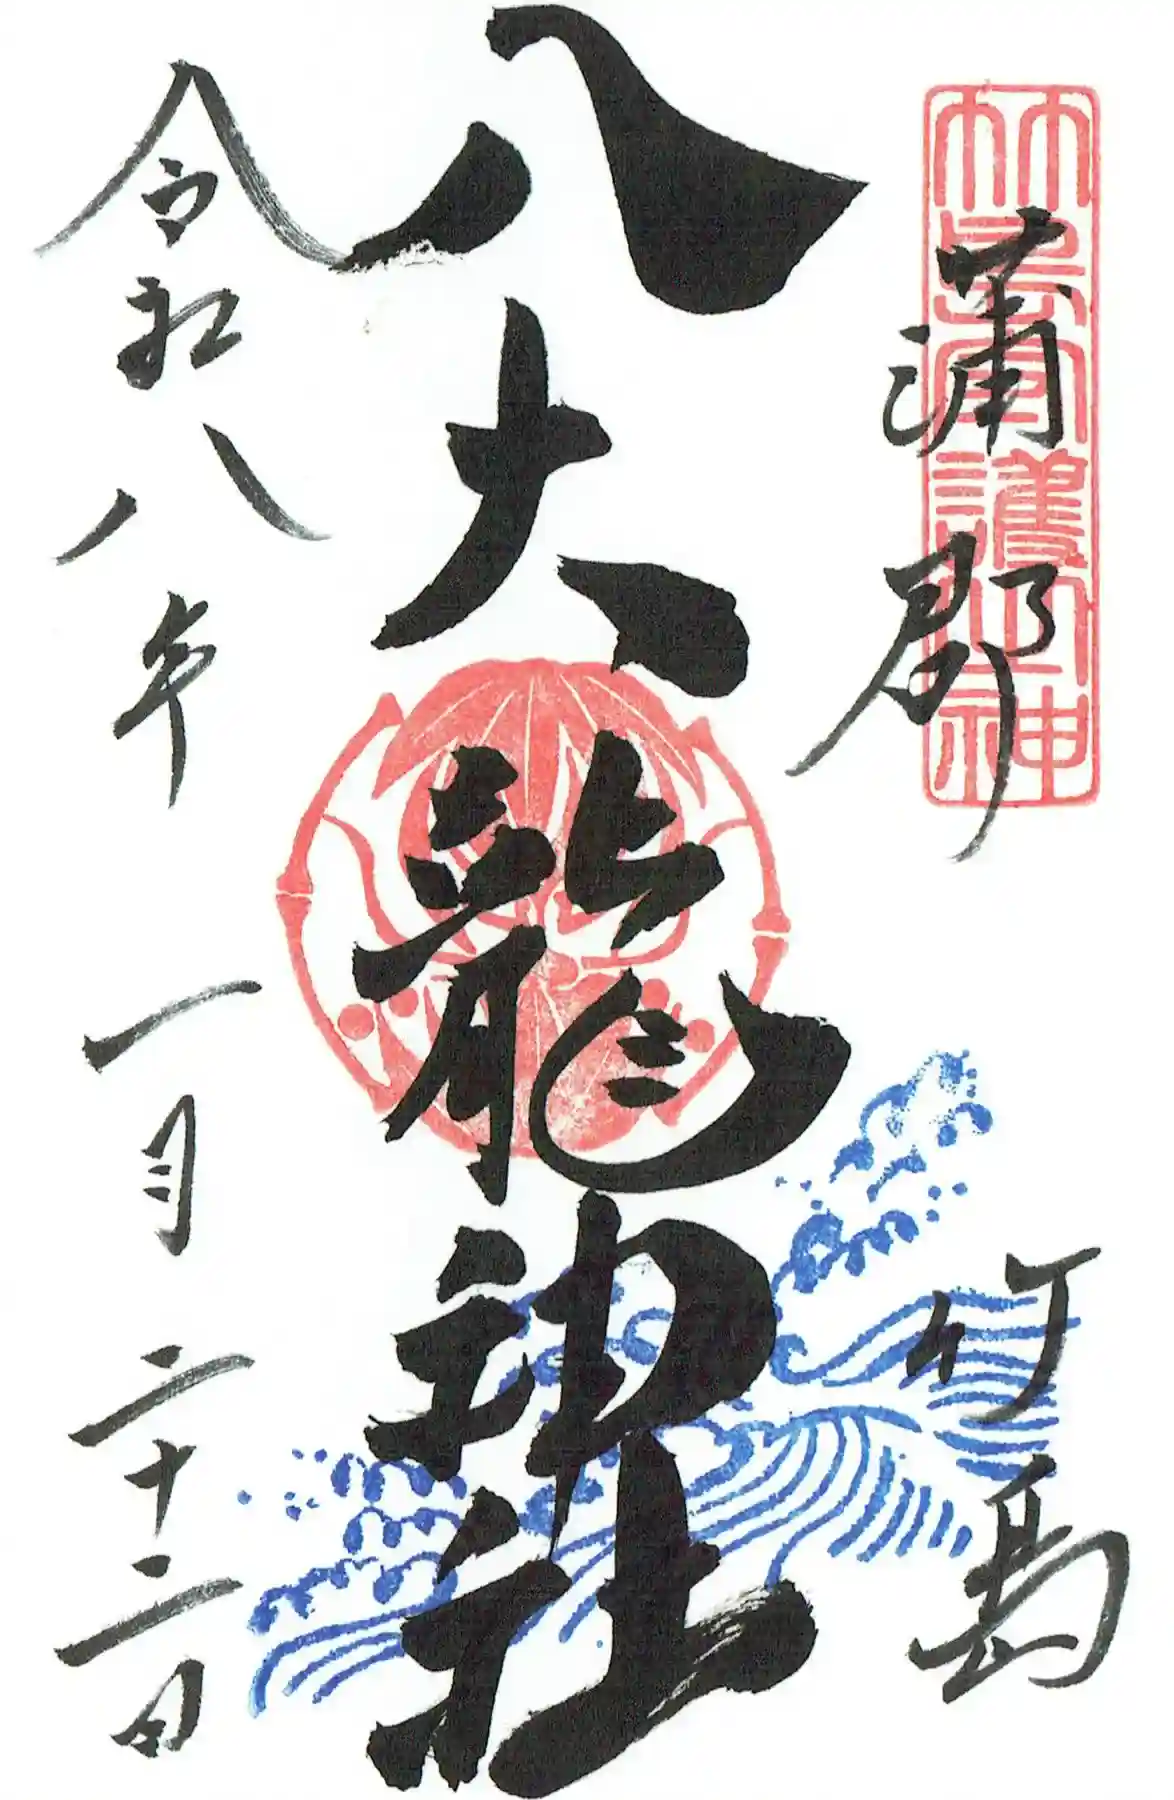 蒲郡　竹島
八大龍神社
令和八年一月二十二日